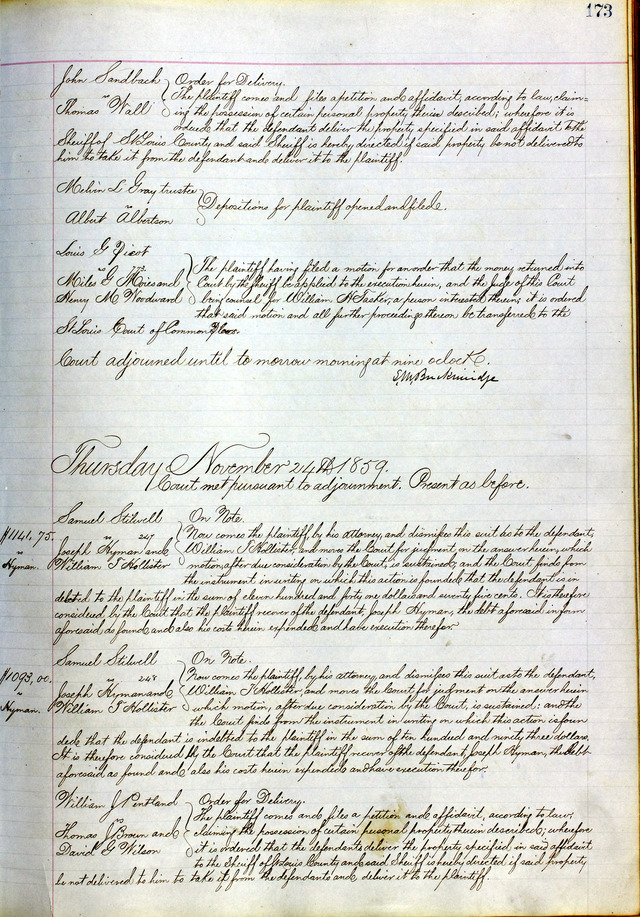 173
John Sandbach Order for Delivery.
vs The plaintiff comes and files a petition and affidavit, according to law, claim-
Thomas Wall ing the possession of certain personal property therein described; wherefore it is
ordered that the defendant deliver the property specified in said affidavit to the
Sheriff of St Louis County and said Sheriff is hereby directed if said property be not delivered to
him to take it from the defendant and deliver it to the plaintiff.
Melvin L Gray trustee
vs Depositions for plaintiff opened and filed.
Albert Albertson
Louis G Picot
vs The plaintiff having filed a motion for an order that the money returned into
Miles G Moies and Court by the sheriff be applied to the execution herein, and the Judge of this Court
Henry M Woodward being counsel for William A Tasker, a person interested therein; it is ordered
that said motion and all further proceedings thereon be transferred to the
St Louis Court of Common Pleas.
Court adjourned until to morrow morning at nine oclock.
S.M. Breckinridge
Thursday November 24th 1859.
Court met pursuant to adjournment. Present as before.
Samuel Stilwell On Note.
$1141,75. vs 247 Now comes the plaintiff by his attorney, and dismisses this suit as to the defendant,
Joseph Hyman and William T Hollister, and moves the Court for judgment, on the answer herein, which
vs Hyman. William T Hollister motion, after due consideration by the Court, is sustained; and the Court finds from
the instrument in writing on which this action is founded that the defendant is in
debted to the plaintiff in the sum of eleven hundred and forty one dollars and seventy five cents. It is therefore
considered by the Court that the plaintiff recover of the defendant, Joseph Hyman, the debt aforesaid in form
aforesaid, as found, and also his costs herein expended and have execution therefor.
Samuel Stilwell On Note.
$1093,00. vs 248 Now comes the plaintiff, by his attorney, and dismisses this suit as to the defendant,
Joseph Hyman and William T Hollister and moves the Court for judgment on the answer herein
vs Hyman. William T Hollister which motion, after due consideration by the Court, is sustained: and the
the Court finds from the instrument in writing on which this action is foun
ded that the defendant is indebted to the plaintiff in the sum of ten hundred and ninty three dollars.
It is therefore considered by the Court that the plaintiff recover of the defendant, Joseph Hyman, the debt
aforesaid as found and also his costs herein expended and have execution therefor.
William J Pentland Order for Delivery.
vs The plaintiff comes and files a petition and affidavit, according to law,
Thomas J Brown and claiming the possession of certain personal property therein described; wherefore
David G Wilson it is ordered that the defendants deliver the property specified in said affidavit
to the Sheriff of St Louis County and said Sheriff is hereby directed if said property
be not delivered to him to take it from the defendants and deliver it to the plaintiff.